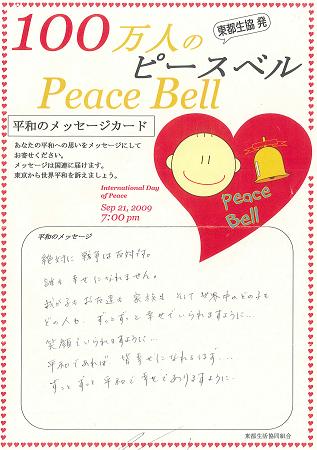 100万人の
東都生協 発
ピースベル
Peace Bell
平和のメッセージカード
あなたの平和への思いをメッセージにして
お寄せください。
メッセージは国連に届けます。
東京から世界平和を訴えましょう。
International Day
of Peace
Sep 21, 2009
7:00 pm
Peace
Bell
平和のメッセージ
絶対に 戦争は反対です。
誰も 幸せになれません。
我が子も お友達も 家族も そして世界中のどの子も
どの人も、ずっとずっと幸せでいられますように…
笑顔でいられますように…
平和であれば 皆幸せになれるはず…
ずっとずっと 平和で 幸せでありますように
東都生活協同組合